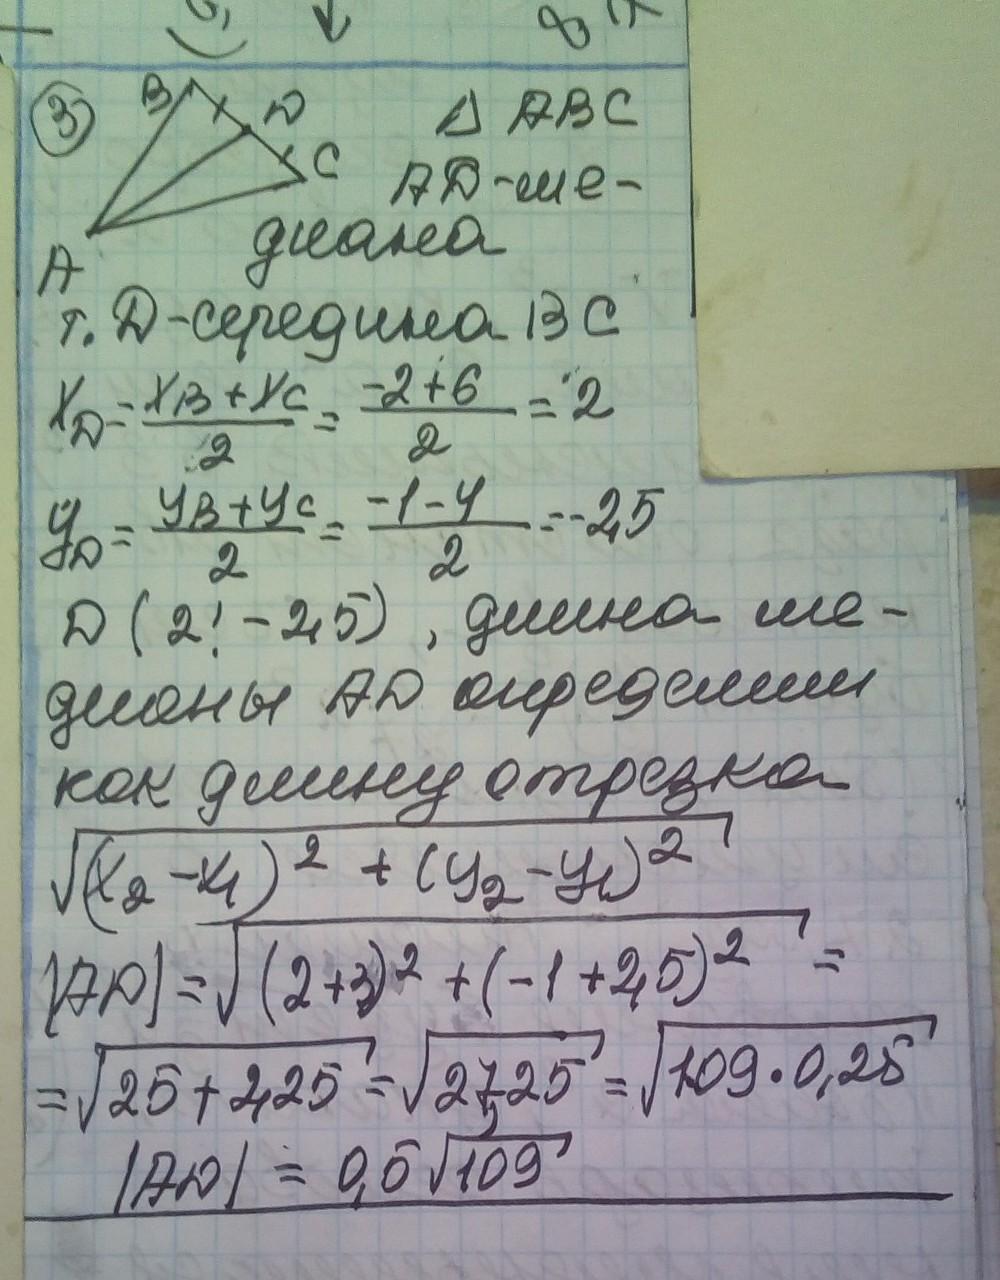 ③ B D C A Δ ABC
AD-ме-
диана
т. D-середина BC
x_D = (x_B + x_C)/2 = (-2+6)/2 = 2
y_D = (y_B + y_C)/2 = (-1-4)/2 = -2,5
D (2; -2,5), длина ме-
дианы AD определим
как длину отрезка
√((x₂ - x₁)² + (y₂ - y₁)²)
|AD| = √((2+3)² + (-1+2,5)²) =
= √(25+2,25) = √(27,25) = √(109·0,25)
|AD| = 0,5√109